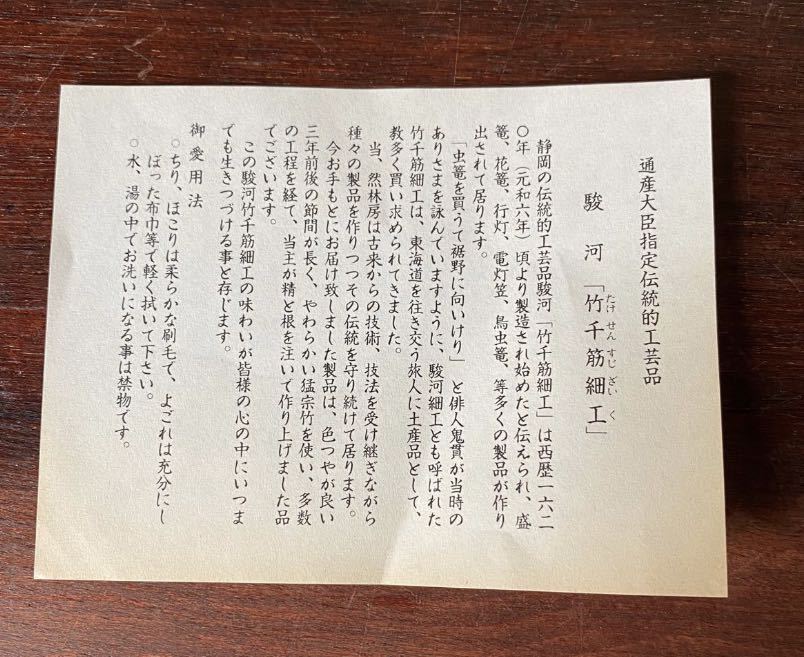 通産大臣指定伝統的工芸品
駿河「竹千筋細工」
たけ せん すじ ざい く
静岡の伝統的工芸品駿河「竹千筋細工」は西歴一六二
〇年（元和六年）頃より製造され始めたと伝えられ、盛
篭、花篭、行灯、電灯笠、鳥虫篭、等多くの製品が作り
出されて居ります。
「虫篭を買うて裾野に向いけり」と俳人鬼貫が当時の
ありさまを詠んでいますように、駿河細工とも呼ばれた
竹千筋細工は、東海道を往き交う旅人に土産品として、
教多く買い求められてきました。
当、然林房は古来からの技術、技法を受け継ぎながら
種々の製品を作りつつその伝統を守り続けて居ります。
今お手もとにお届け致しました製品は、色つやが良い
三年前後の節間が長く、やわらかい猛宗竹を使い、多数
の工程を経て、当主が精と根を注いで作り上げました品
でございます。
この駿河竹千筋細工の味わいが皆様の心の中にいつま
でも生きつづける事と存じます。
御愛用法
○ちり、ほこりは柔らかな刷毛で、よごれは充分にし
ぼった布巾等で軽く拭いて下さい。
○水、湯の中でお洗いになる事は禁物です。